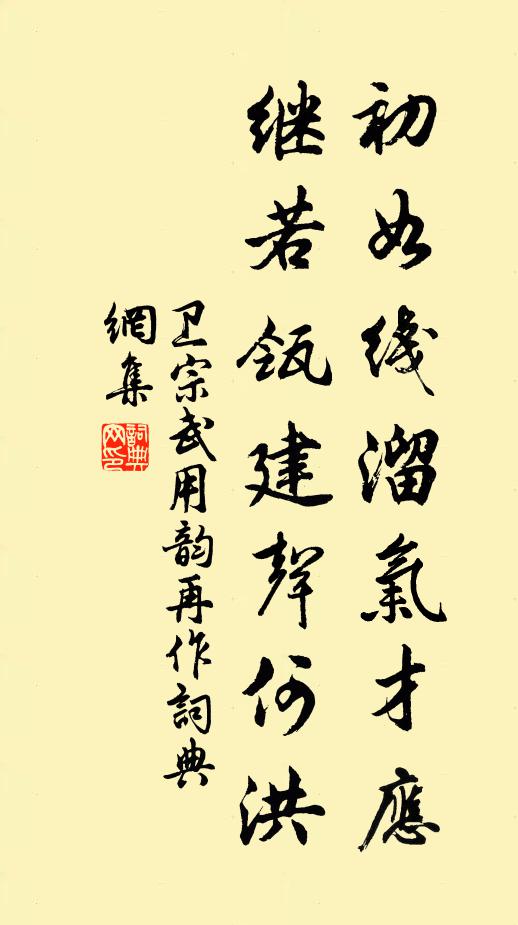 初如綫溜氣才應
继若瓴建聲何洪
卫宗武用韵再作詞典
網集
詞典
网印